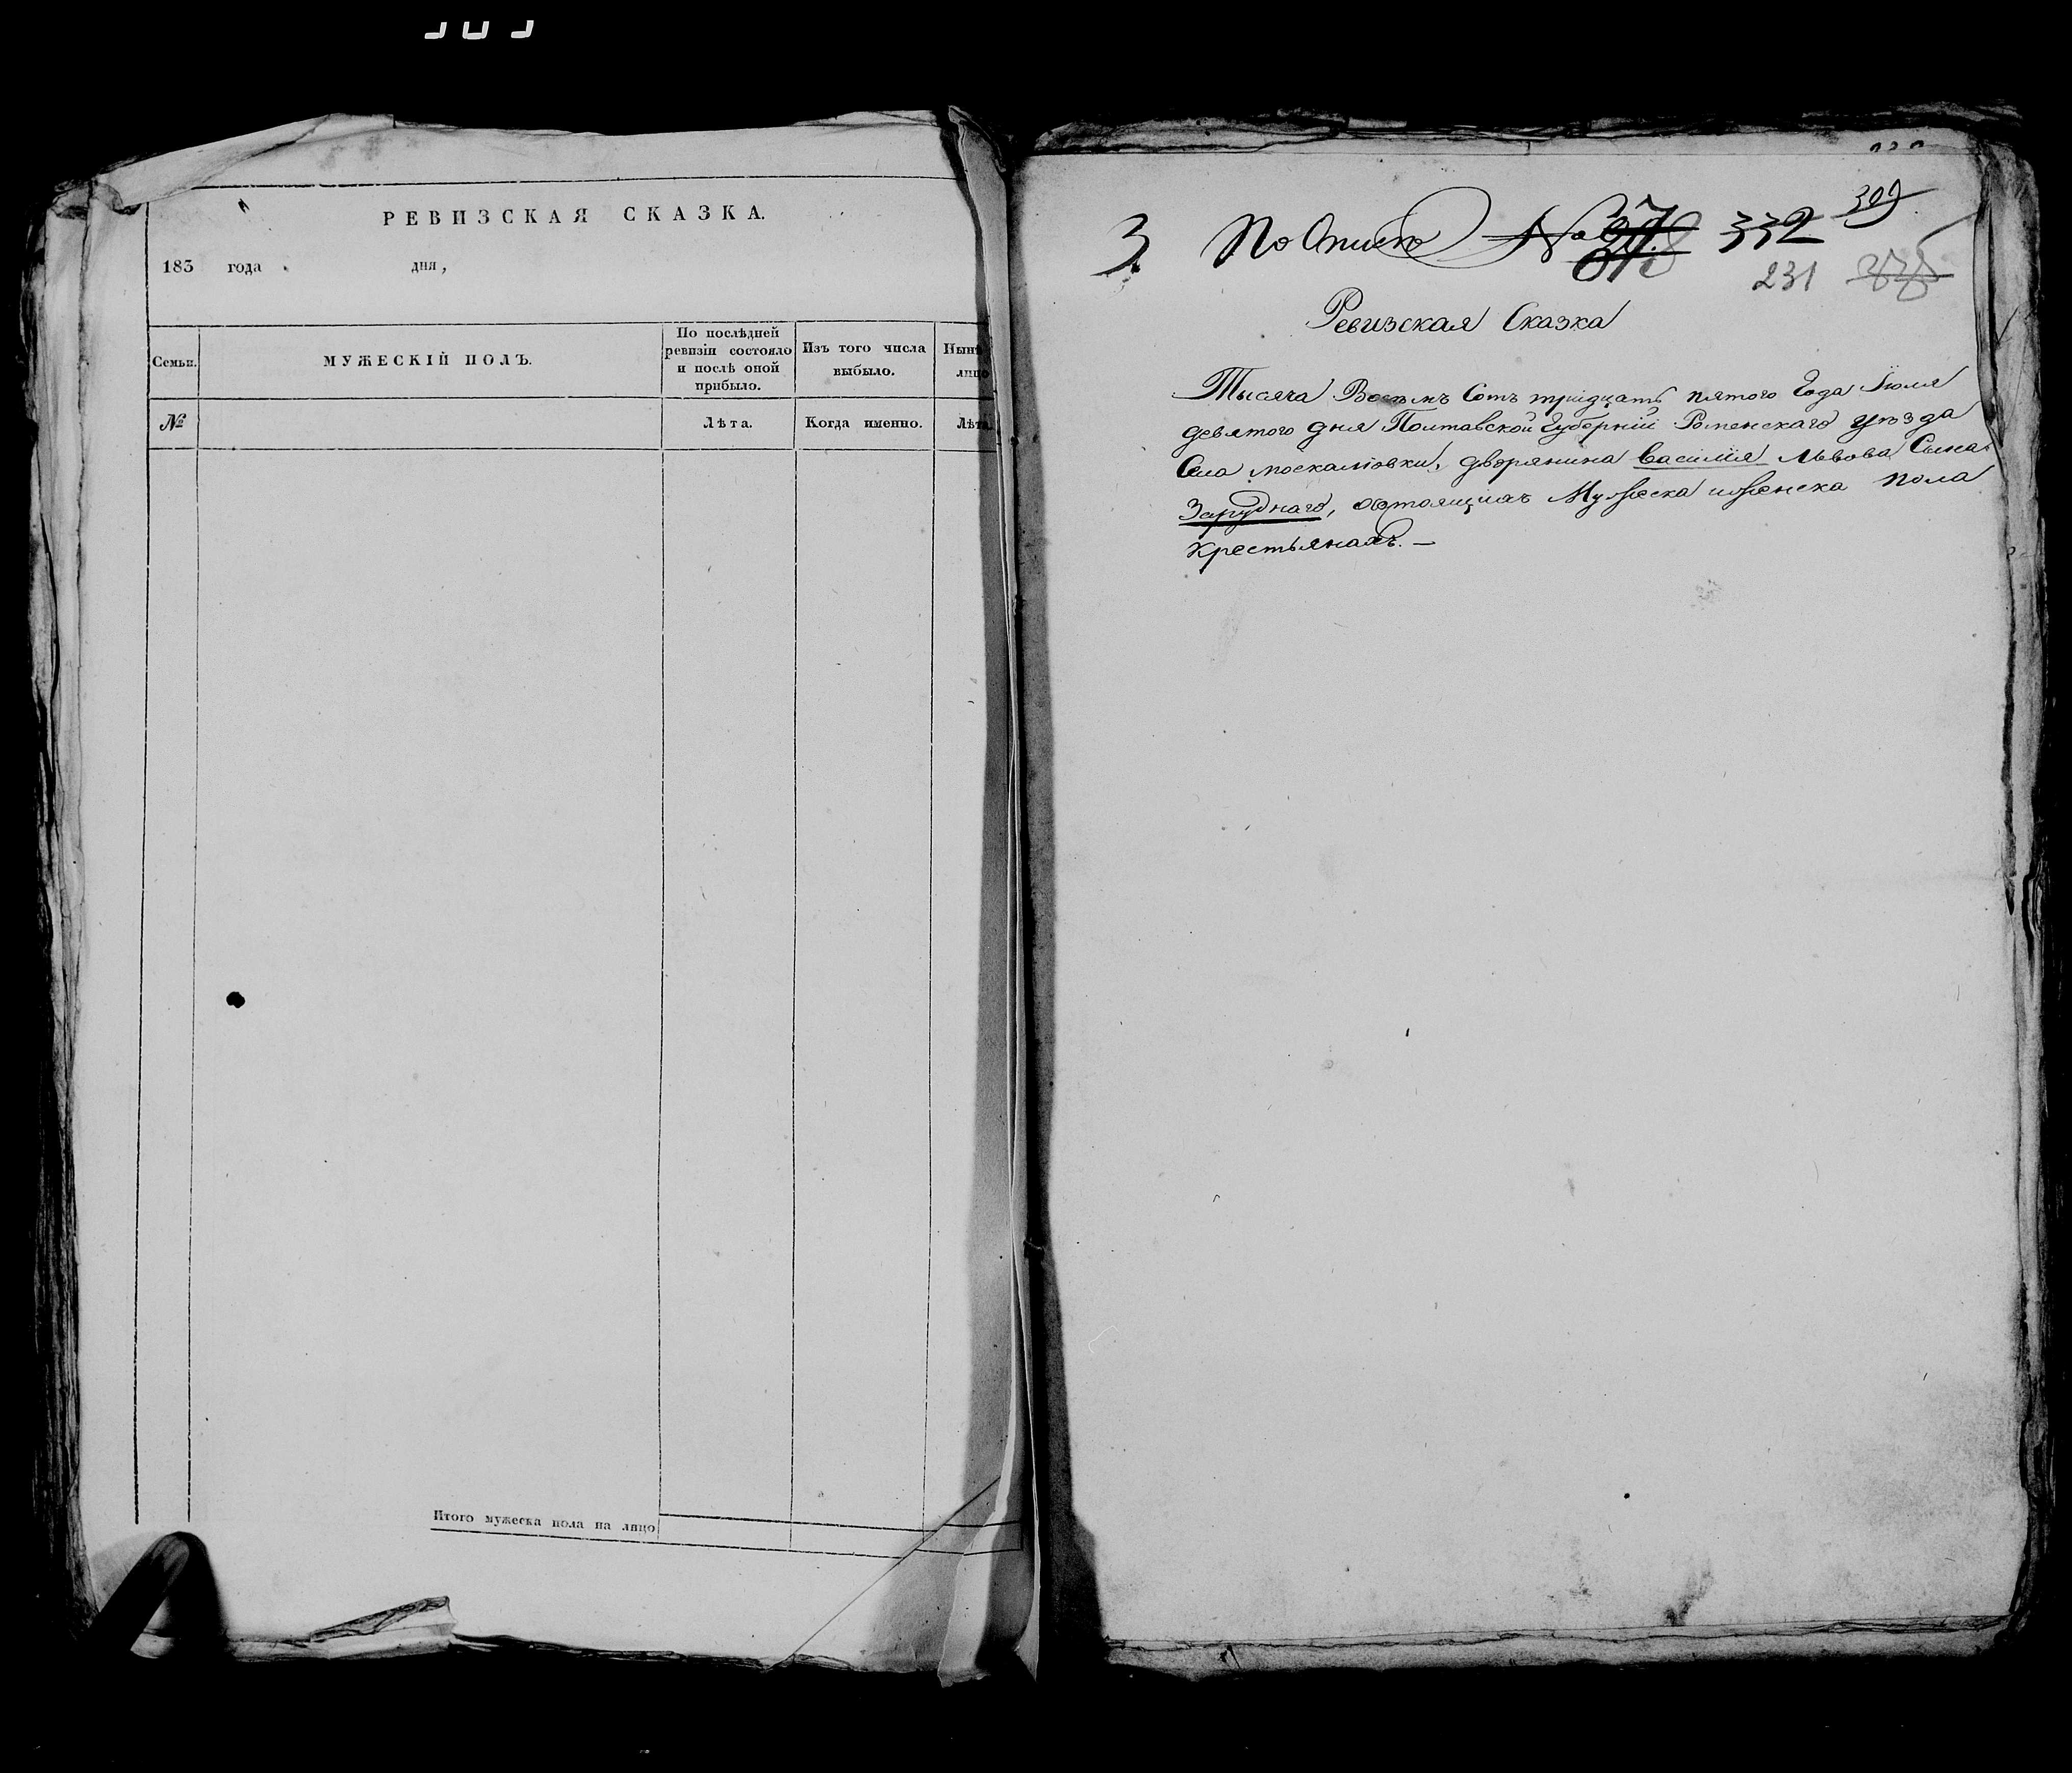 РЕВИЗСКАЯ СКАЗКА.
183 года дня,
Семьи.
МУЖЕСКІЙ ПОЛЪ.
По послѣдней
ревизіи состояло
и послѣ оной
прибыло.
Изъ того числа
выбыло.
Нынѣ
лицо
№
Лѣта.
Когда именно.
Лѣта.
Итого мужеска пола на лицо
3. По Описи № 332 309
231
Ревизская Сказка
Тысяча Восемъ Сотъ тридцать пятого Года Іюля
девятого дня Полтавской Губерніи Роменскаго уѣзда
Села москалювки, дворянина Василія Львова Сына
Заруднаго, состоящимъ Мужеска иженска пола
крестьянамъ. —